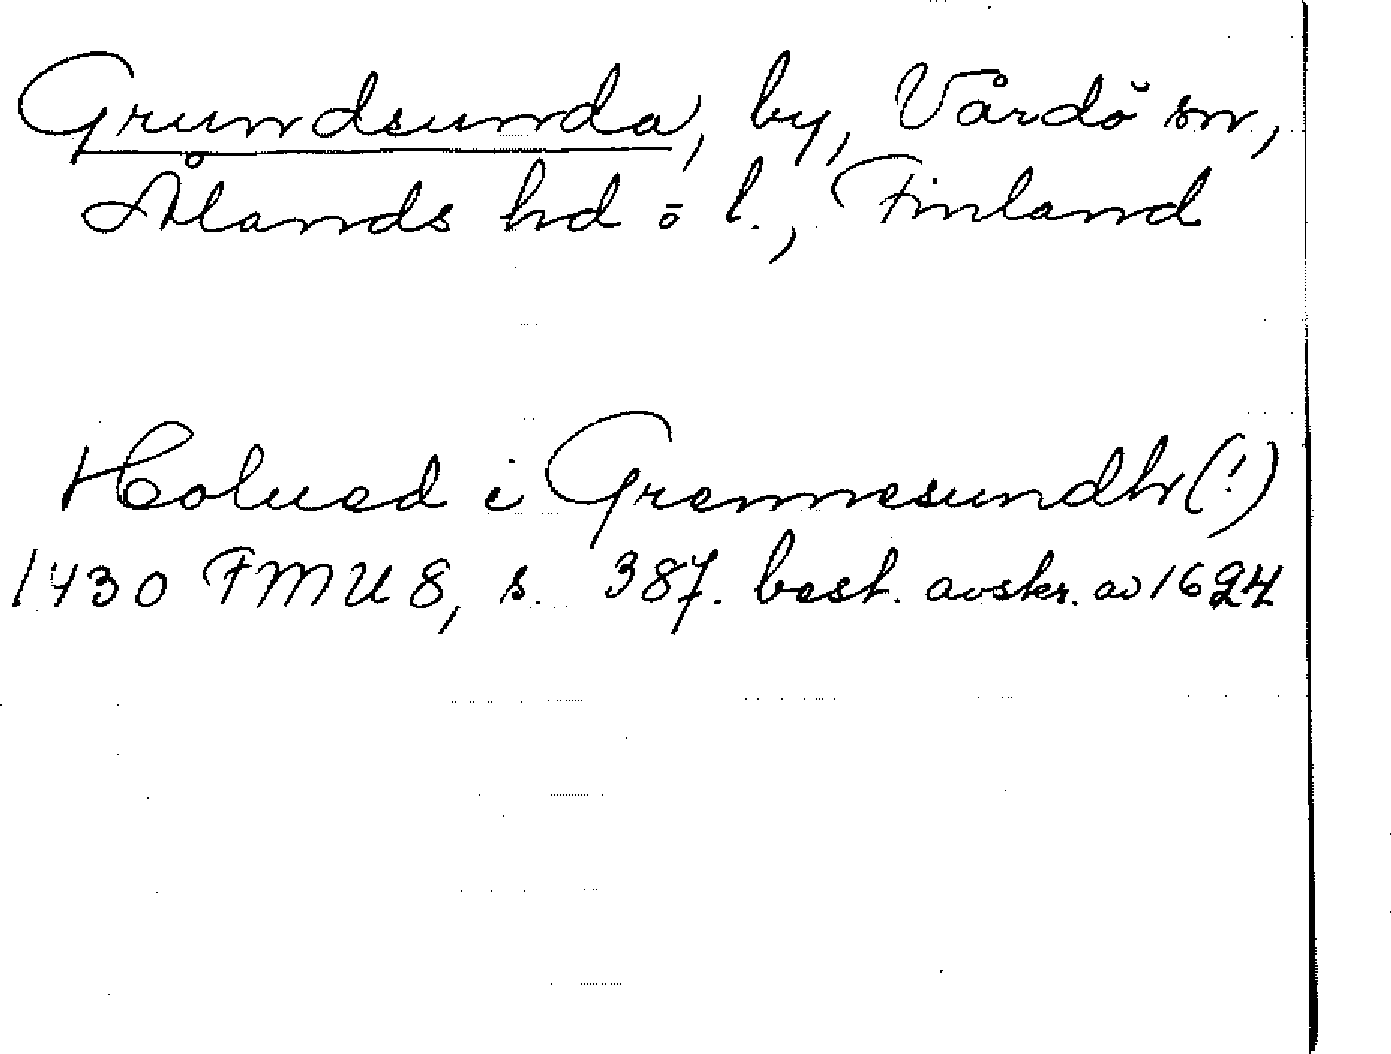 Grundsunda, by, Vårdö sn,
Ålands hd o l., Finland
Holued i Grennesundh (!)
1430 FMU 8, s. 387. best. avskr. av 1624